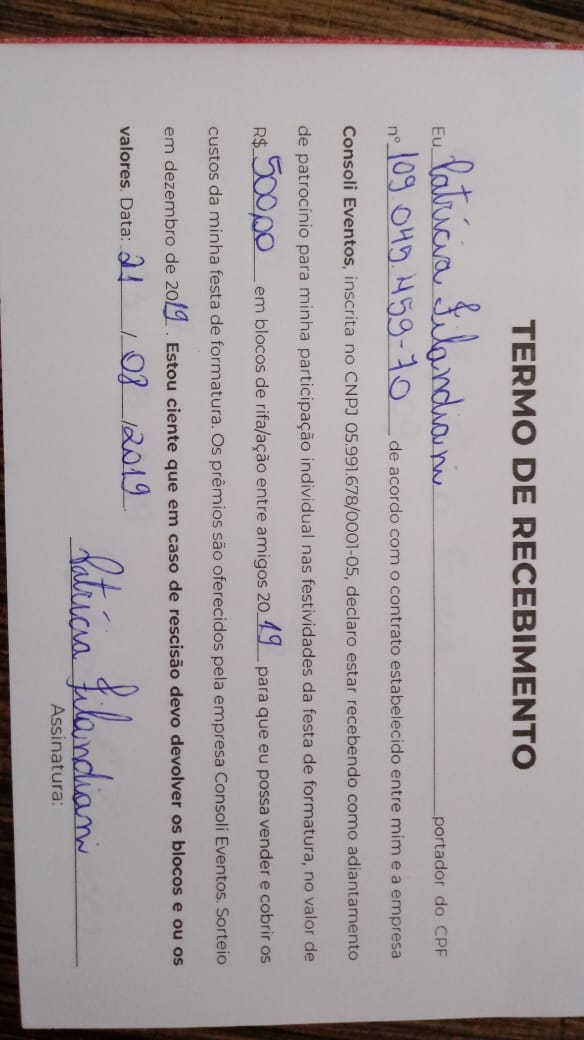 TERMO DE RECEBIMENTO
Eu Patrícia Filandiani portador do CPF
nº 109 049.459-70 de acordo com o contrato estabelecido entre mim e a empresa
Consoli Eventos, inscrita no CNPJ 05.991.678/0001-05, declaro estar recebendo como adiantamento
de patrocínio para minha participação individual nas festividades da festa de formatura, no valor de
R$ 500,00 em blocos de rifa/ação entre amigos 2019 para que eu possa vender e cobrir os
custos da minha festa de formatura. Os prêmios são oferecidos pela empresa Consoli Eventos. Sorteio
em dezembro de 2019. Estou ciente que em caso de rescisão devo devolver os blocos e ou os
valores. Data: 21 / 08 /2019.
Patrícia Filandiani
Assinatura: